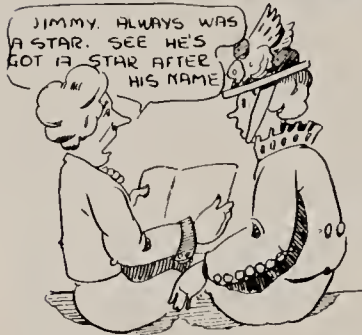 JIMMY. ALWAYS WAS
A STAR. SEE HE'S
GOT A STAR AFTER
HIS NAME